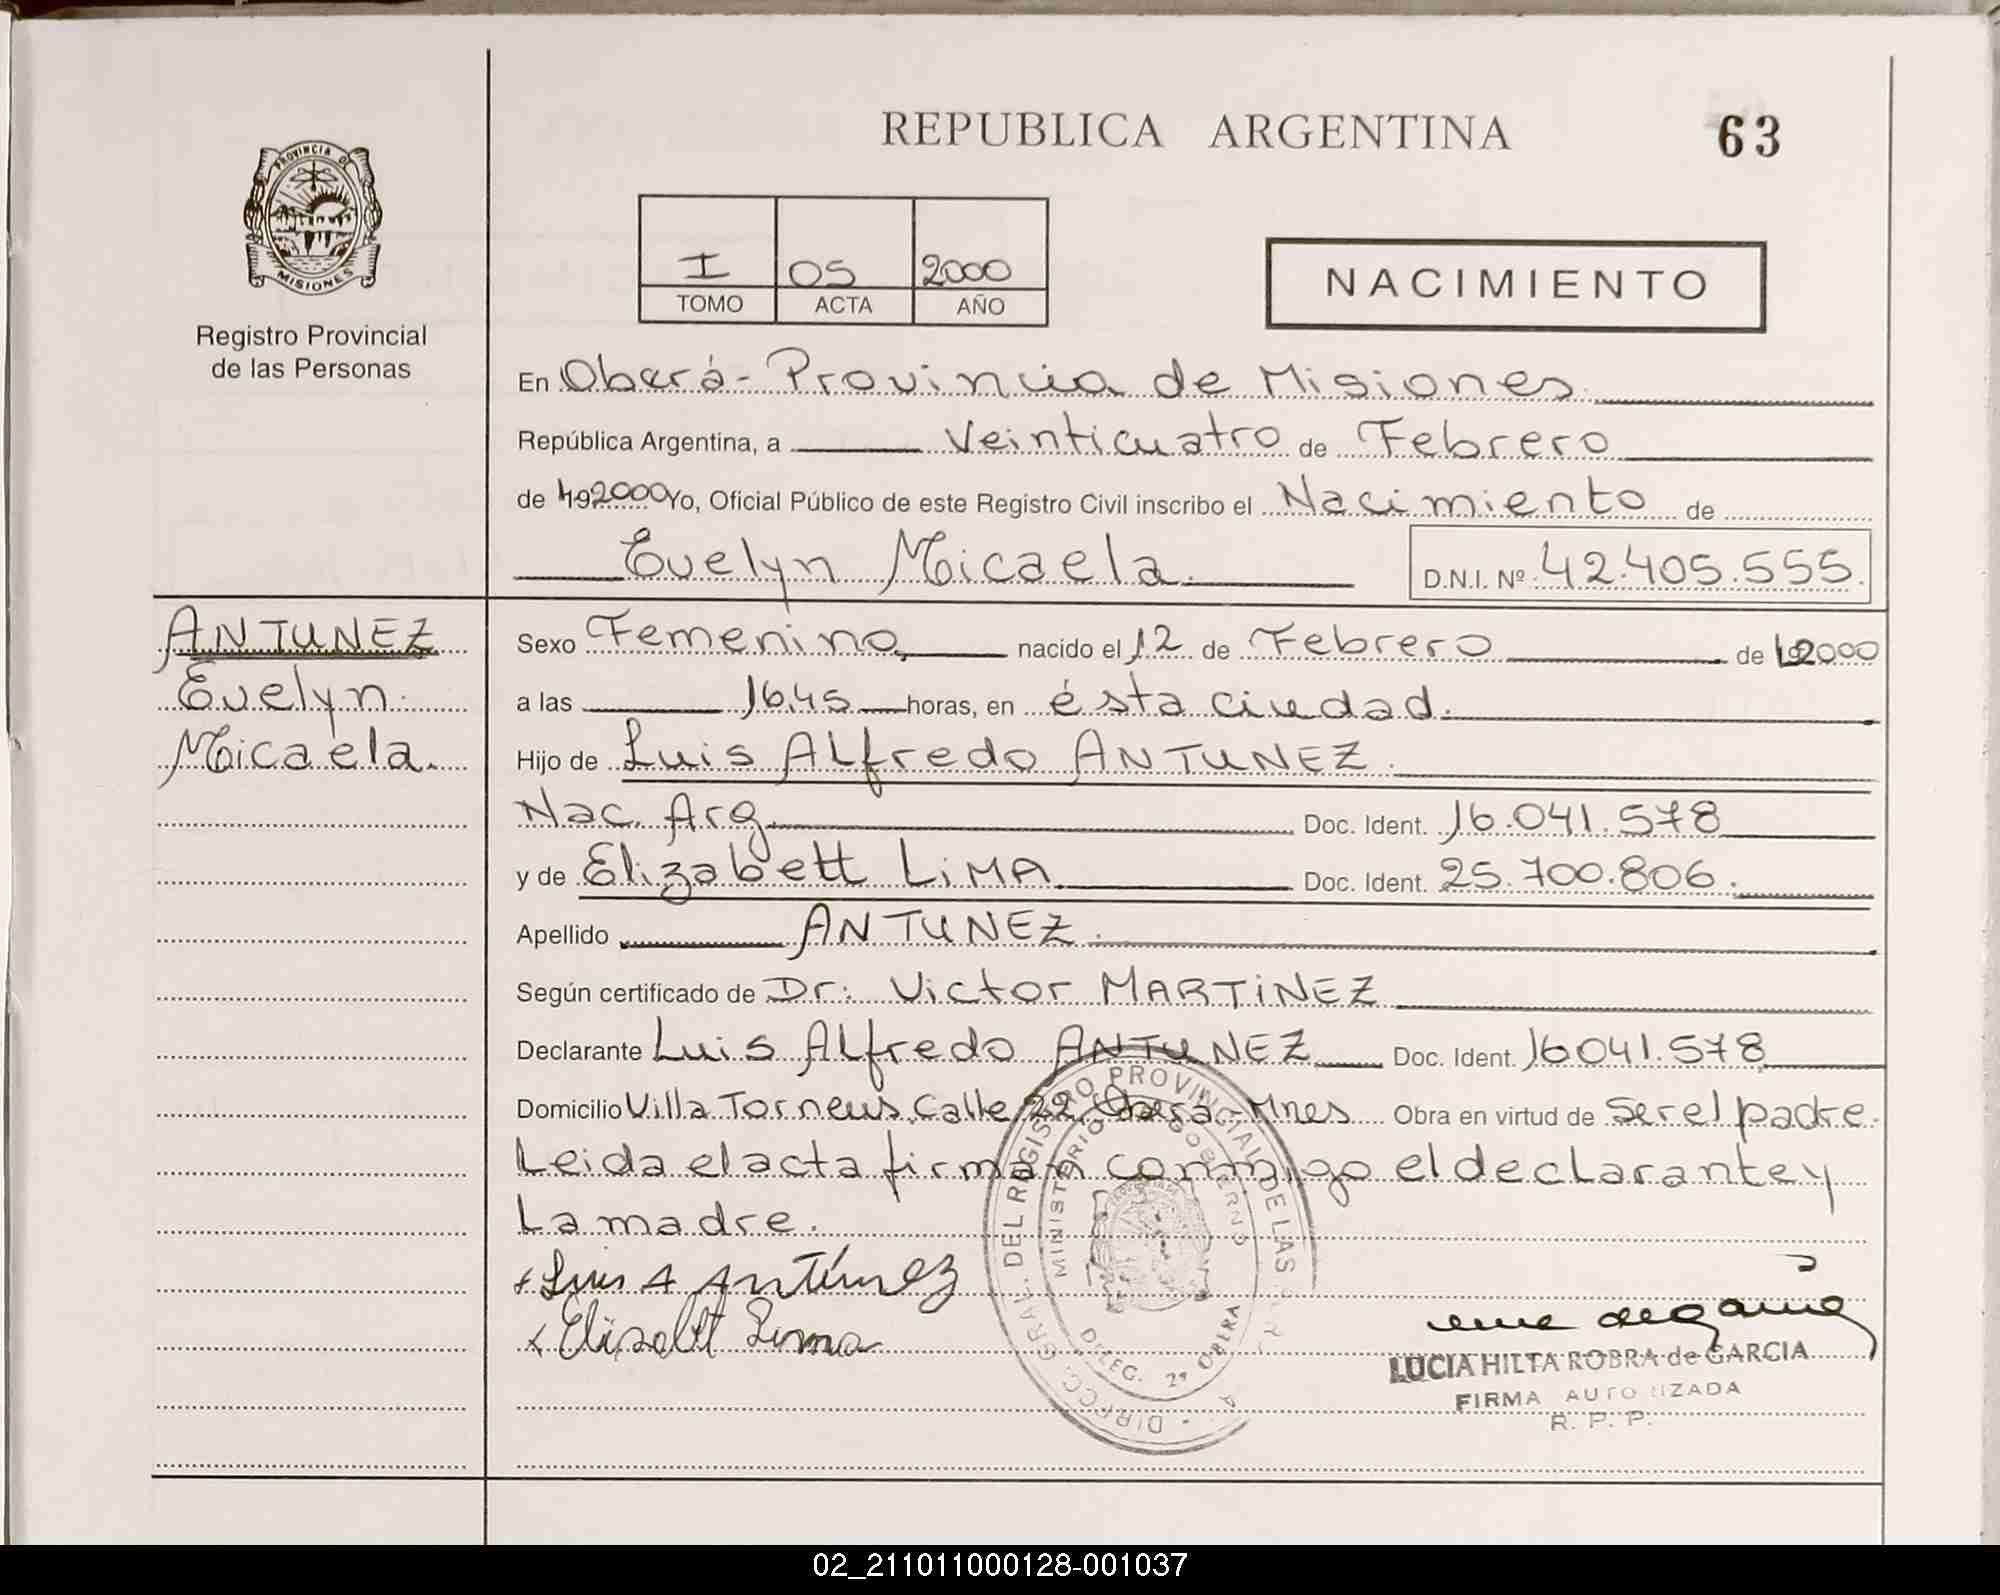 REPUBLICA ARGENTINA
63
PROVINCIA DE
MISIONES
Registro Provincial
de las Personas
I 05 2000
TOMO ACTA AÑO
NACIMIENTO
En Oberá - Provincia de Misiones
República Argentina, a Veinticuatro de Febrero
de 192000 Yo, Oficial Público de este Registro Civil inscribo el Nacimiento de
Evelyn Micaela. D.N.I. Nº 42.405.555.
ANTUNEZ
Evelyn
Micaela.
Sexo Femenino, nacido el 12 de Febrero de 192000
a las 16.45 horas, en ésta ciudad.
Hijo de Luis Alfredo ANTUNEZ.
Nac. Arg. Doc. Ident. 16.041.578
y de Elizabett LiMA Doc. Ident. 25.700.806.
Apellido ANTUNEZ.
Según certificado de Dr: Victor MARTiNEZ
Declarante Luis Alfredo ANTUNEZ Doc. Ident. 16041.578
Domicilio Villa Torneus Calle 22 Oberá - Mnes Obra en virtud de Ser el padre.
Leida el acta firman conmigo el declarante y
La madre.
Luis A Antúnez
Elizabett Lima
DIRECC. GRAL. DEL REGISTRO PROVINCIAL DE LAS
MINISTERIO DE GOBIERNO
DELEG. 2ª OBERA
LUCIA HILTA ROBRA de GARCIA
FIRMA AUTORIZADA
R. P. P.
02_211011000128-001037